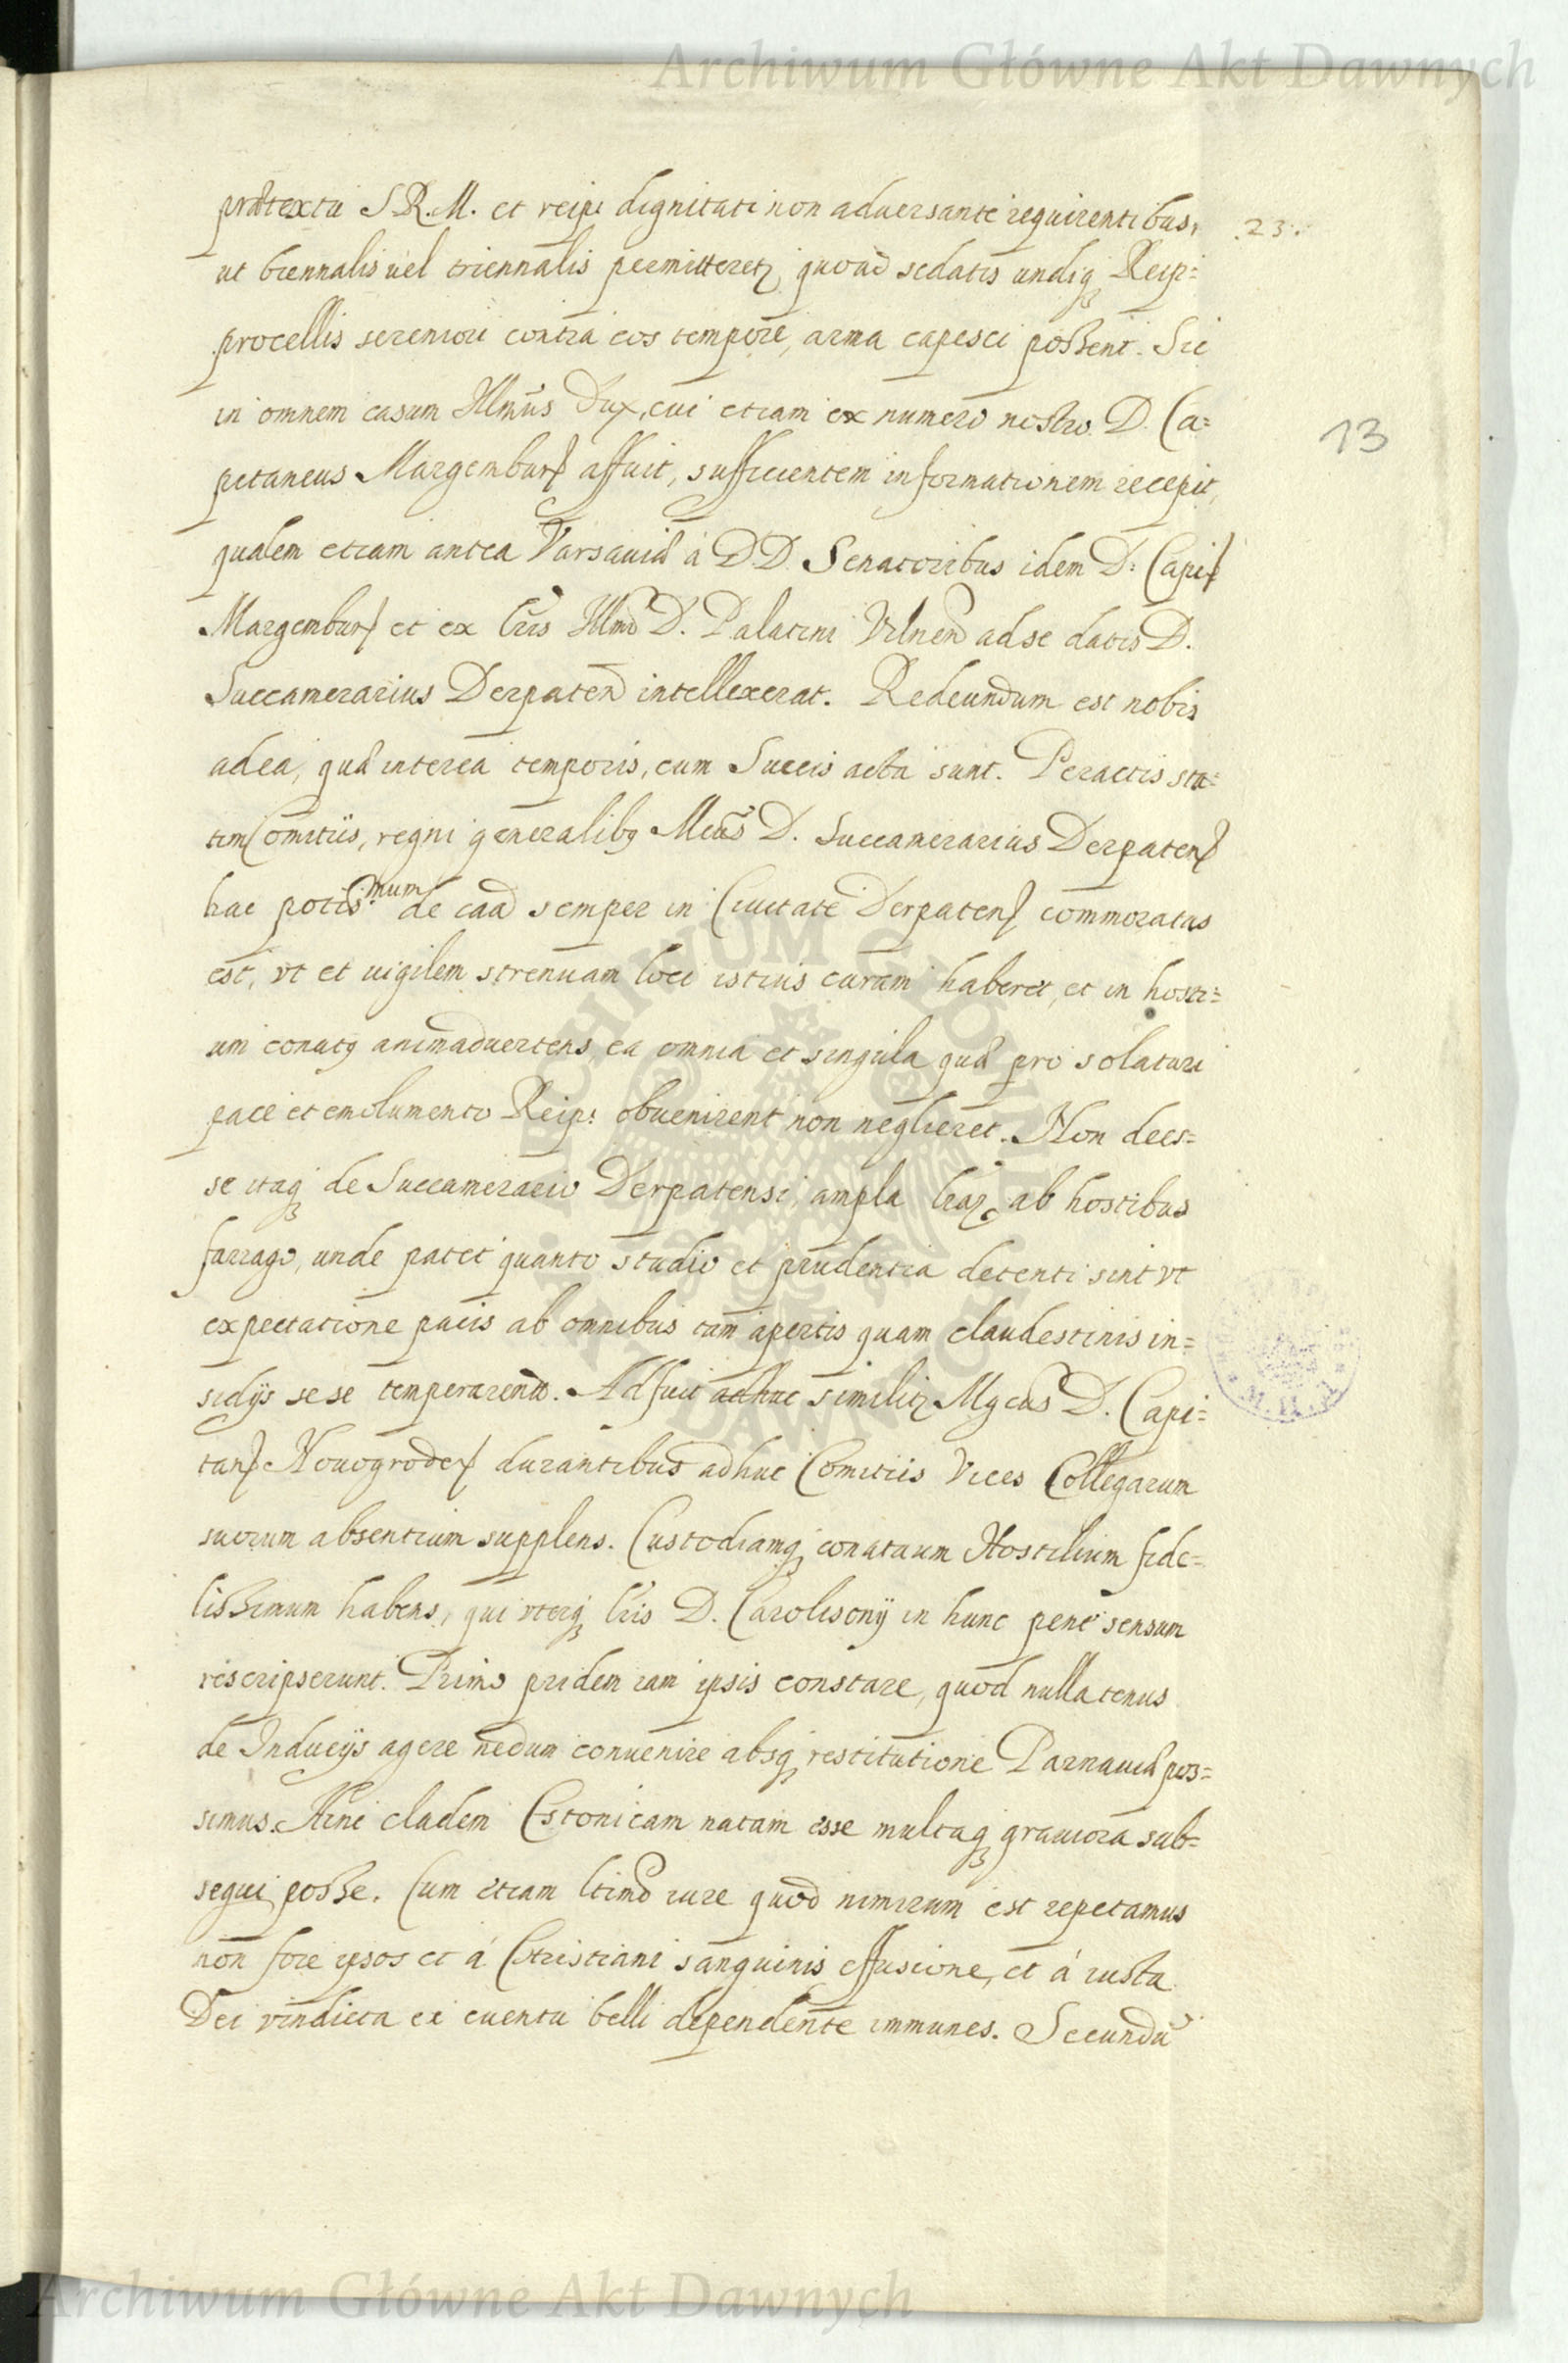 Archiwum Główne Akt Dawnych
prætextu S R. M. et reip: dignitati non aduersante requirentibus, .23.
ut biennalis uel triennalis permitteretꝛ, quoad sedatis undiqꝫ Reip:
procellis sereniori contra eos tempore, arma capesci possent. Sic
in omnem casum Illmus Dux, cui etiam ex numero nostro D. Ca= 13
petaneus Margemburg affuit, sufficientem informationem recepit,
qualem etiam antea Varsauiæ à D.D. Senatoribus idem D: Capit
Margemburg et ex lris Illmi D. Palatini Vilnen ad se datis D.
Succamerarius Derpaten intellexerat. Redeundum est nobis
ad ea, quæ interea temporis, cum Suecis acta sunt. Peractis sta=
tim Comitiis, regni generalibꝫ Mcus D. Succamerarius Derpaten
hac potiss.mum de cau semper in Ciuitate Derpaten commoratus
est, vt et uigilem strenuam loci istius curam haberet, et in hosti=
um conatꝫ animaduertens, ea omnia et singula quæ pro solaturi
pace et emolumento Reip: obuenirent non neglieret. Non dees=
se itaqꝫ de Succamerario Derpatensi, ampla lraꝝ ab hostibus
farrago, unde patet quanto studio et prudentia detenti sint vt
expectatione pacis ab omnibus tam apertis quam claudestinis in=
sidijs sese temperarent. Adfuit adhuc similitꝛ Mgcus D. Capi=
tan Nouogrode durantibus adhuc Comitiis Vices Collegarum
suorum absentium supplens. Custodiamqꝫ conatuum Hostilium fide=
lissimum habens, qui vterqꝫ lris D. Carolisonij in hunc penè sensum
rescripserunt. Primo pridem iam ipsis constare, quod nullatenus
de Inducijs agere nedum conuenire absqꝫ restitutione Parnauiæ pos=
simus. Hinc cladem Estonicam natam esse multaqꝫ grauiora sub=
sequi posse. Cum etiam ltimo iure quod nimirum est repetamus
non fore ipsos et à Christiani sanguinis effusione, et à iusta
Dei vindicta ex euentu belli dependente immunes. Secundū
Archiwum Główne Akt Dawnych